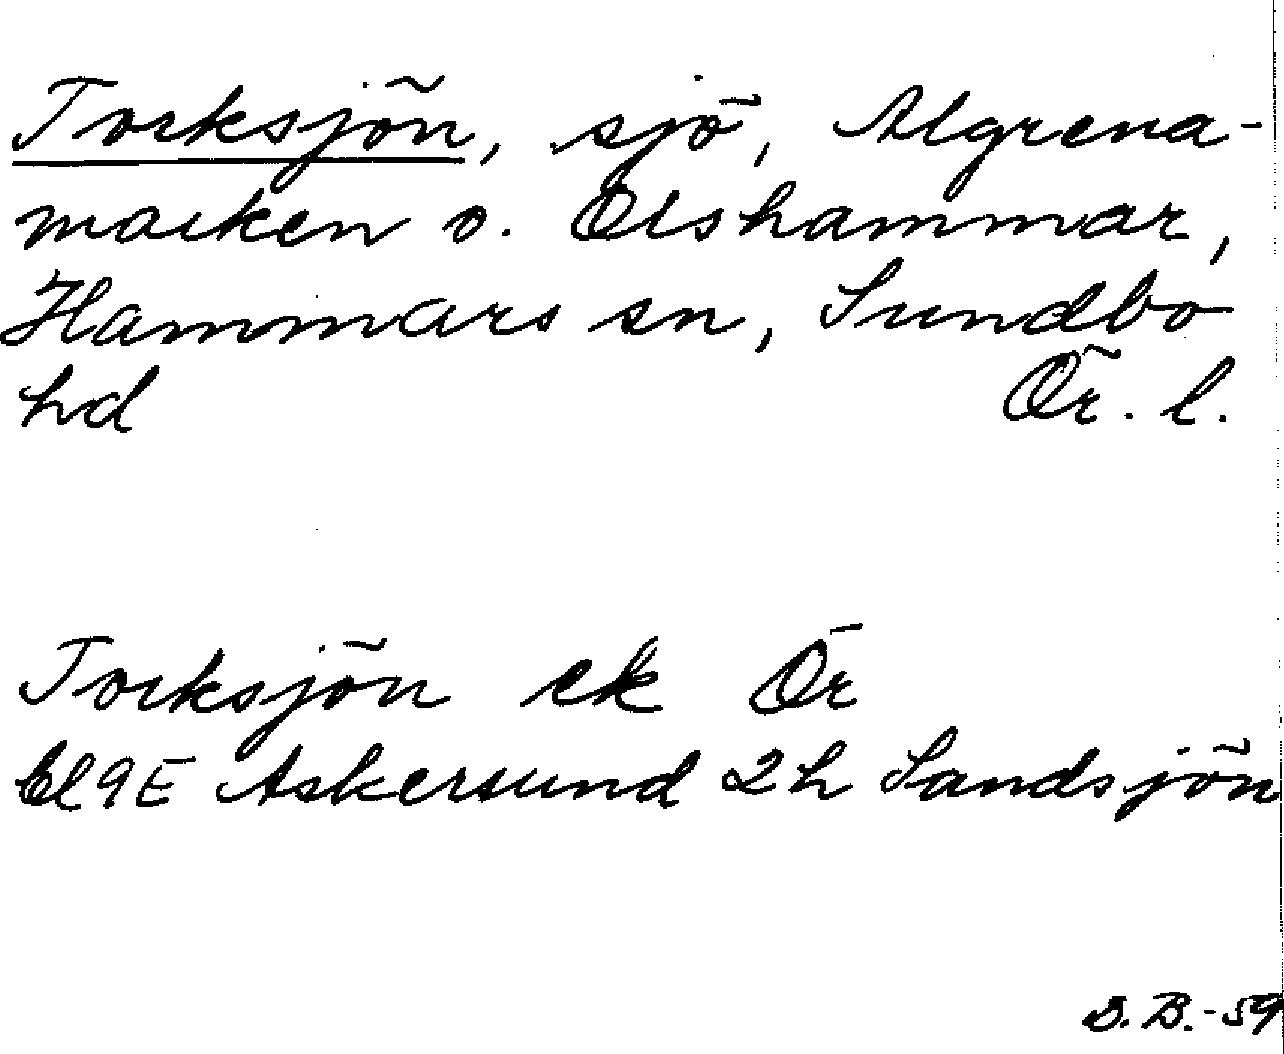 Torksjön, sjö, Algrena-
marken o. Olshammar,
Hammars sn, Sundbo
hd Ör. l.
Torksjön ek Ör
Bl 9E Askersund 2h Sandsjön
S.B.-59